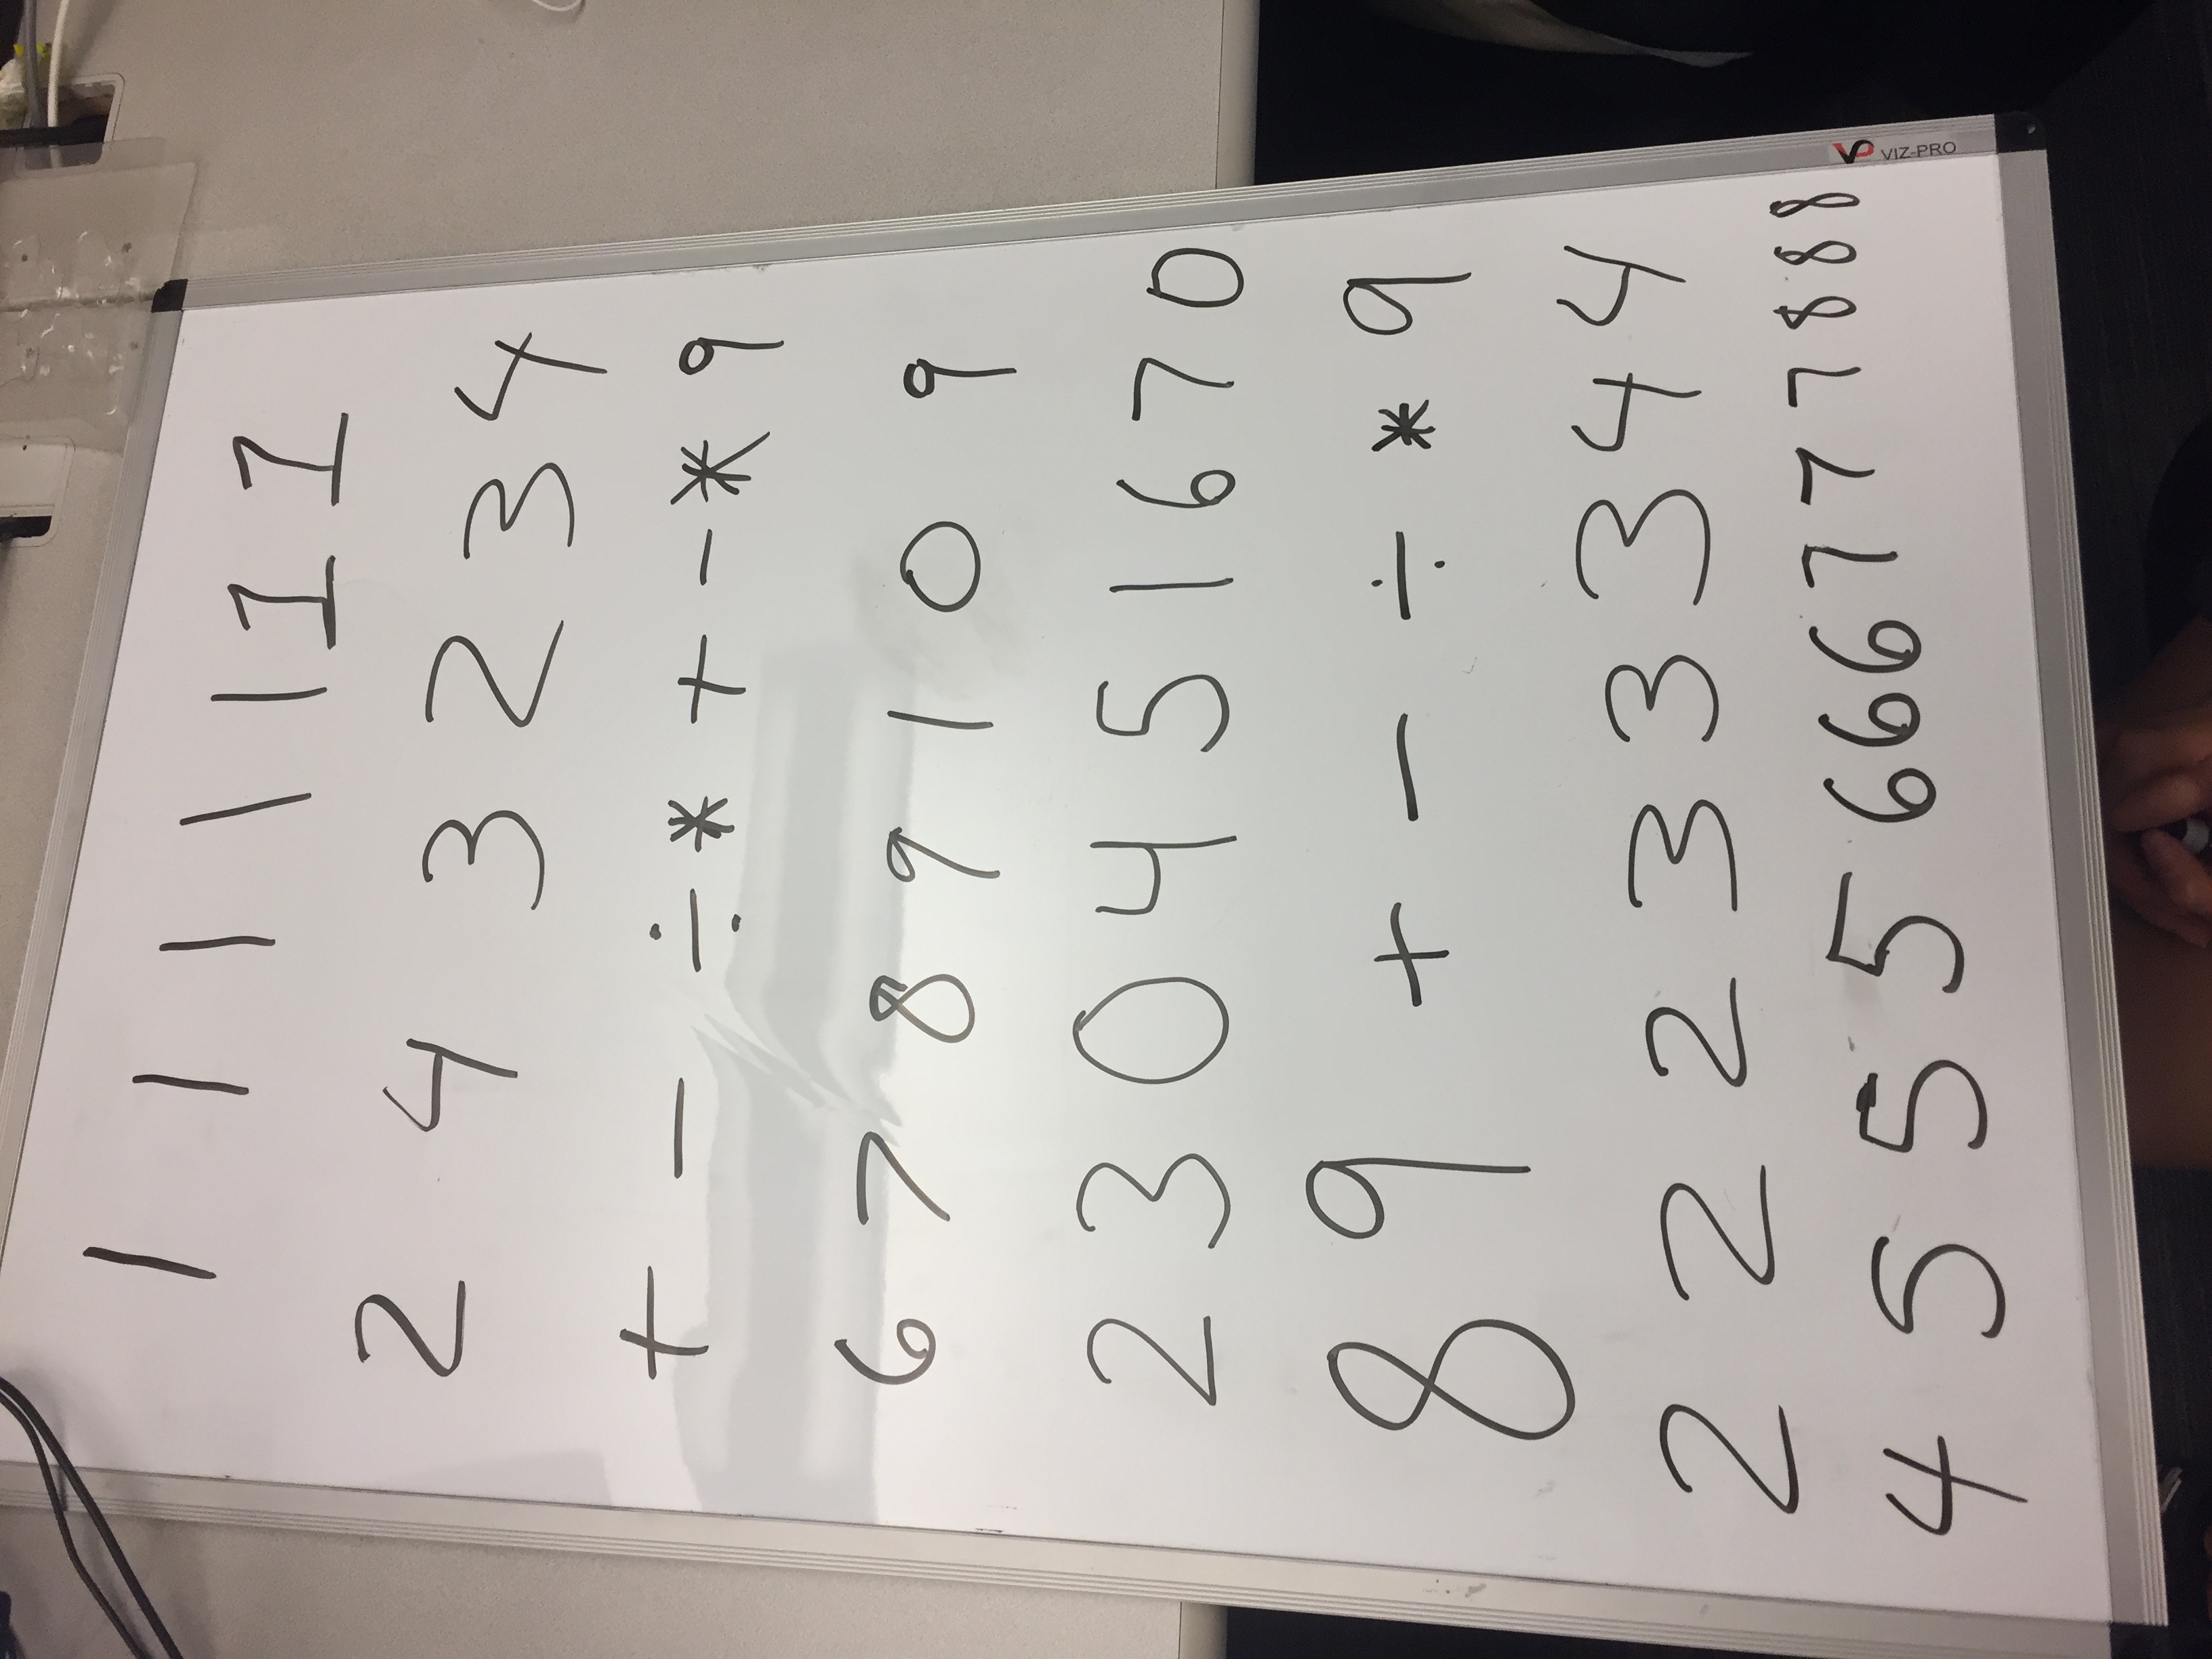 1 1 1 1 1 1 1
2 4 3 2 3 4
+ - ÷ * + - * 9
6 7 8 9 1 0 9
2 3 0 4 5 1 6 7 0
8 9 + - ÷ * 9
2 2 2 3 3 3 4 4
4 5 5 5 6 6 6 7 7 7 8 8 8
VIZ-PRO